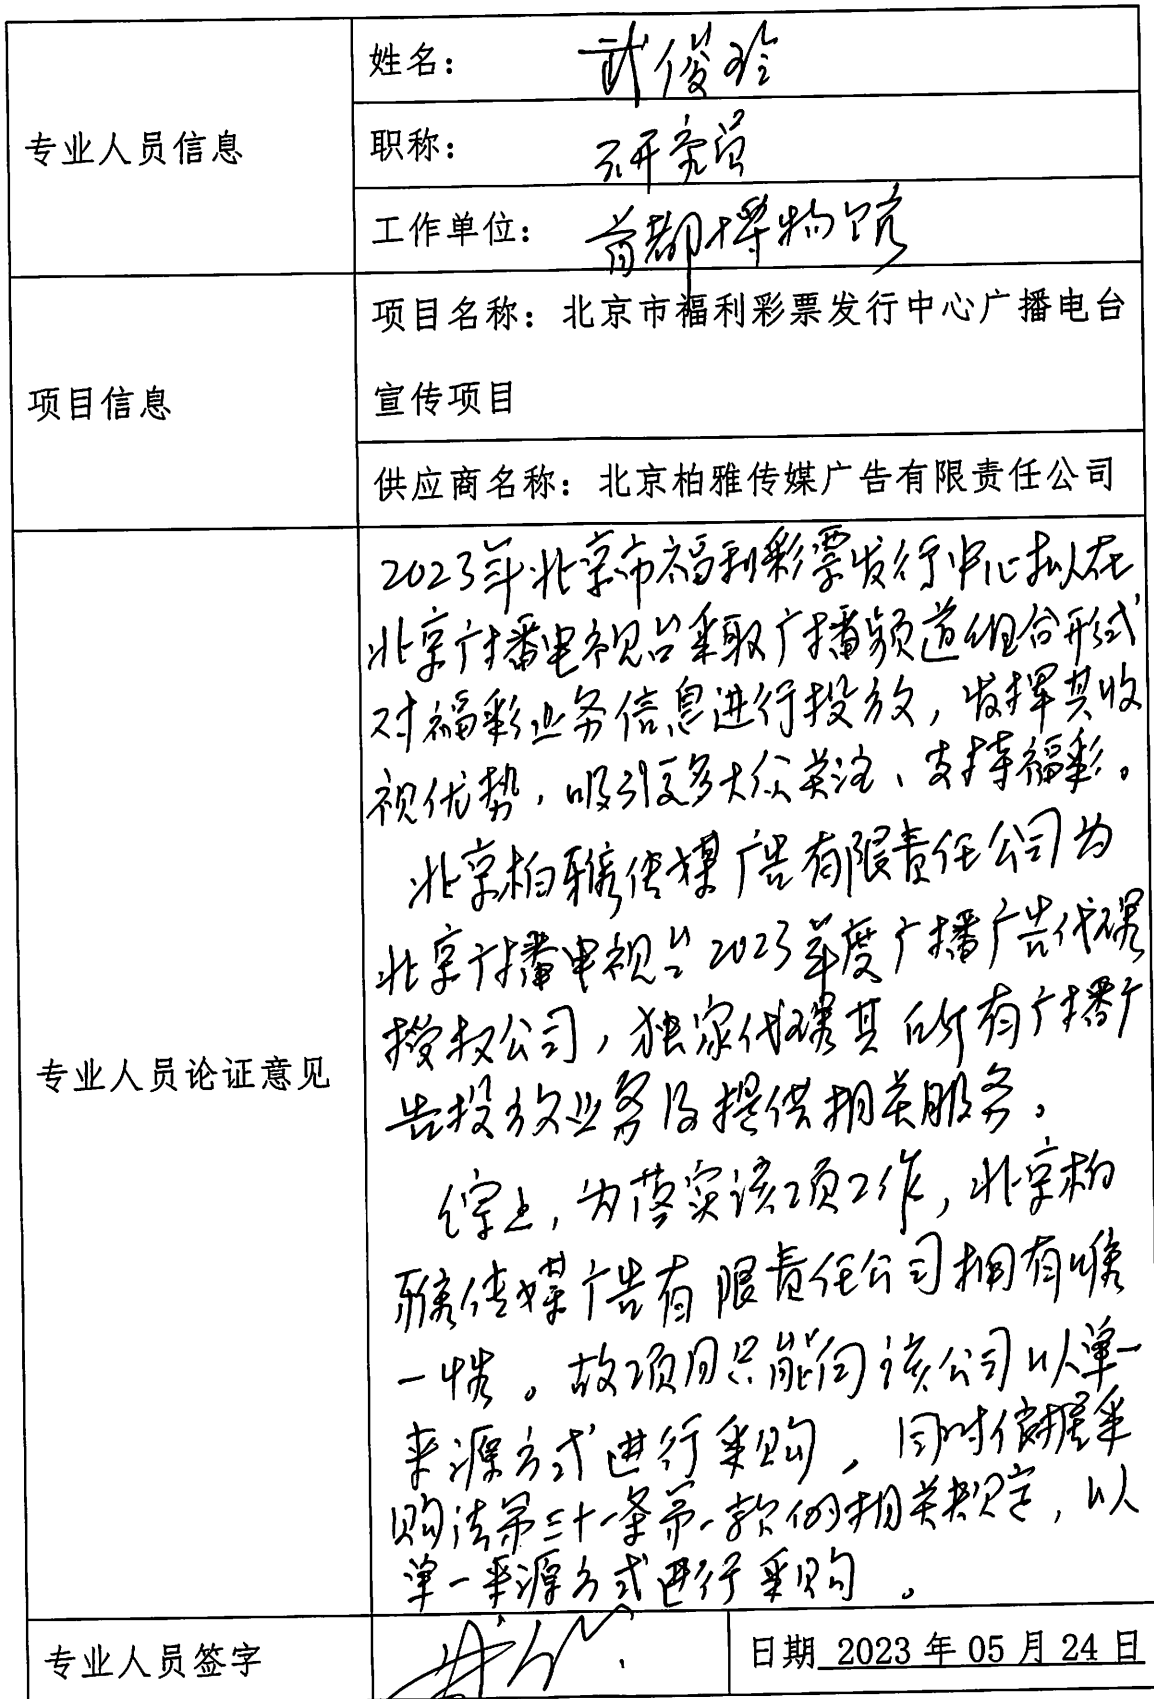 专业人员信息
姓名：武俊玲
职称：研究员
工作单位：首都博物馆
项目信息
项目名称：北京市福利彩票发行中心广播电台
宣传项目
供应商名称：北京柏雅传媒广告有限责任公司
专业人员论证意见
2023年北京市福利彩票发行中心拟在
北京广播电视台采取广播频道组合形式
对福彩业务信息进行投放，发挥其收
视优势，吸引更多大众关注、支持福彩。
北京柏雅传媒广告有限责任公司为
北京广播电视台2023年度广播广告代理
授权公司，独家代理其所有广播广
告投放业务及提供相关服务。
综上，为落实该项工作，北京柏
雅传媒广告有限责任公司拥有唯
一性。故项目只能向该公司以单一
来源方式进行采购，同时依据采
购法第三十一条第一款的相关规定，以
单一来源方式进行采购。
专业人员签字
日期 2023 年 05 月 24 日